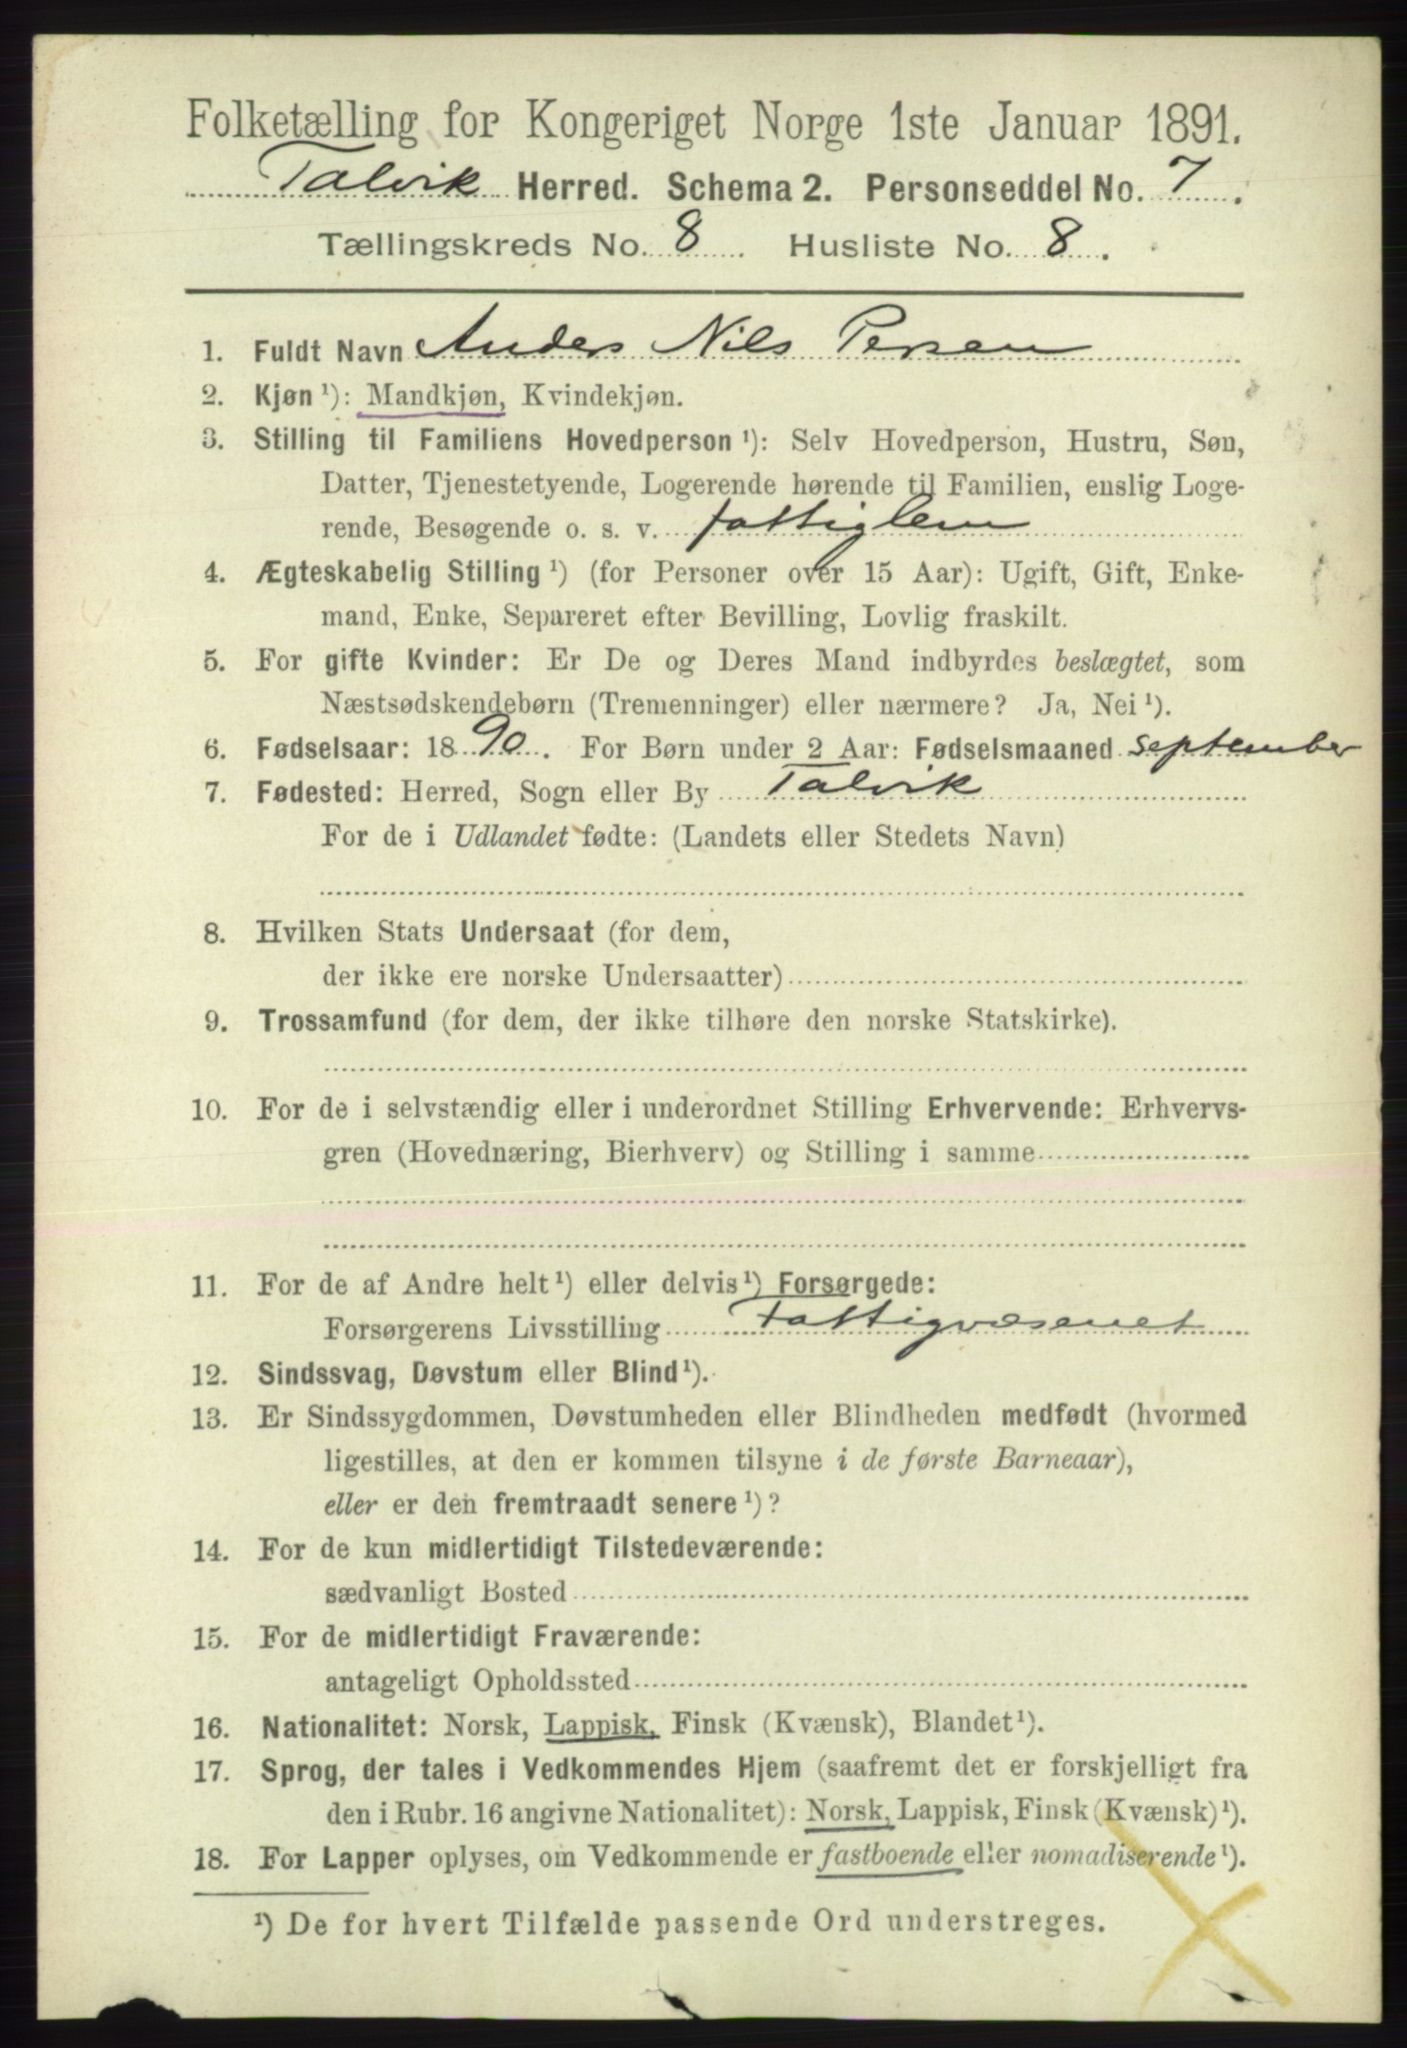 Folketælling for Kongeriget Norge 1ste Januar 1891.
Talvik Herred. Schema 2. Personseddel No. 7.
Tællingskreds No. 8 Husliste No. 8.
1. Fuldt Navn Anders Nils Persen
2. Kjøn ¹): Mandkjøn, Kvindekjøn.
3. Stilling til Familiens Hovedperson ¹): Selv Hovedperson, Hustru, Søn,
Datter, Tjenestetyende, Logerende hørende til Familien, enslig Loge-
rende, Besøgende o. s. v. fattiglem
4. Ægteskabelig Stilling ¹) (for Personer over 15 Aar): Ugift, Gift, Enke-
mand, Enke, Separeret efter Bevilling, Lovlig fraskilt.
5. For gifte Kvinder: Er De og Deres Mand indbyrdes beslægtet, som
Næstsødskendebørn (Tremenninger) eller nærmere? Ja, Nei ¹).
6. Fødselsaar: 1890. For Børn under 2 Aar: Fødselsmaaned September
7. Fødested: Herred, Sogn eller By Talvik
For de i Udlandet fødte: (Landets eller Stedets Navn)
8. Hvilken Stats Undersaat (for dem,
der ikke ere norske Undersaatter)
9. Trossamfund (for dem, der ikke tilhøre den norske Statskirke).
10. For de i selvstændig eller i underordnet Stilling Erhvervende: Erhvervs-
gren (Hovednæring, Bierhverv) og Stilling i samme
11. For de af Andre helt ¹) eller delvis ¹) Forsørgede:
Forsørgerens Livsstilling Fattigvæsenet
12. Sindssvag, Døvstum eller Blind ¹).
13. Er Sindssygdommen, Døvstumheden eller Blindheden medfødt (hvormed
ligestilles, at den er kommen tilsyne i de første Barneaar),
eller er den fremtraadt senere ¹)?
14. For de kun midlertidigt Tilstedeværende:
sædvanligt Bosted
15. For de midlertidigt Fraværende:
antageligt Opholdssted
16. Nationalitet: Norsk, Lappisk, Finsk (Kvænsk), Blandet ¹).
17. Sprog, der tales i Vedkommendes Hjem (saafremt det er forskjelligt fra
den i Rubr. 16 angivne Nationalitet): Norsk, Lappisk, Finsk (Kvænsk) ¹).
18. For Lapper oplyses, om Vedkommende er fastboende eller nomadiserende ¹).
¹) De for hvert Tilfælde passende Ord understreges.